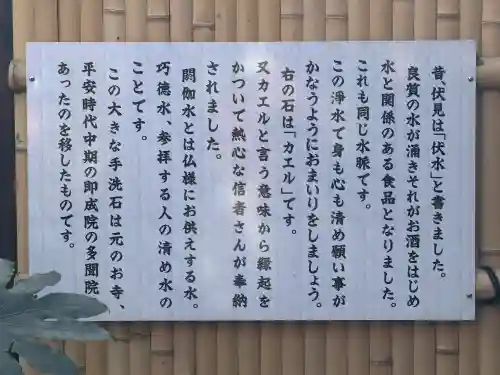 昔、伏見は「伏水」と書きました。
良質の水が涌きそれがお酒をはじめ
水と関係のある食品となりました。
これも同じ水脈です。
この浄水で身も心も清め願い事が
かなうようにおまいりをしましょう。
右の石は「カエル」です。
又カエルと言う意味から縁起を
かついで熱心な信者さんが奉納
されました。
閼伽水とは仏様にお供えする水。
巧徳水、参拝する人の清め水の
ことです。
この大きな手洗石は元のお寺、
平安時代中期の即成院の多聞院
あったのを移したものです。